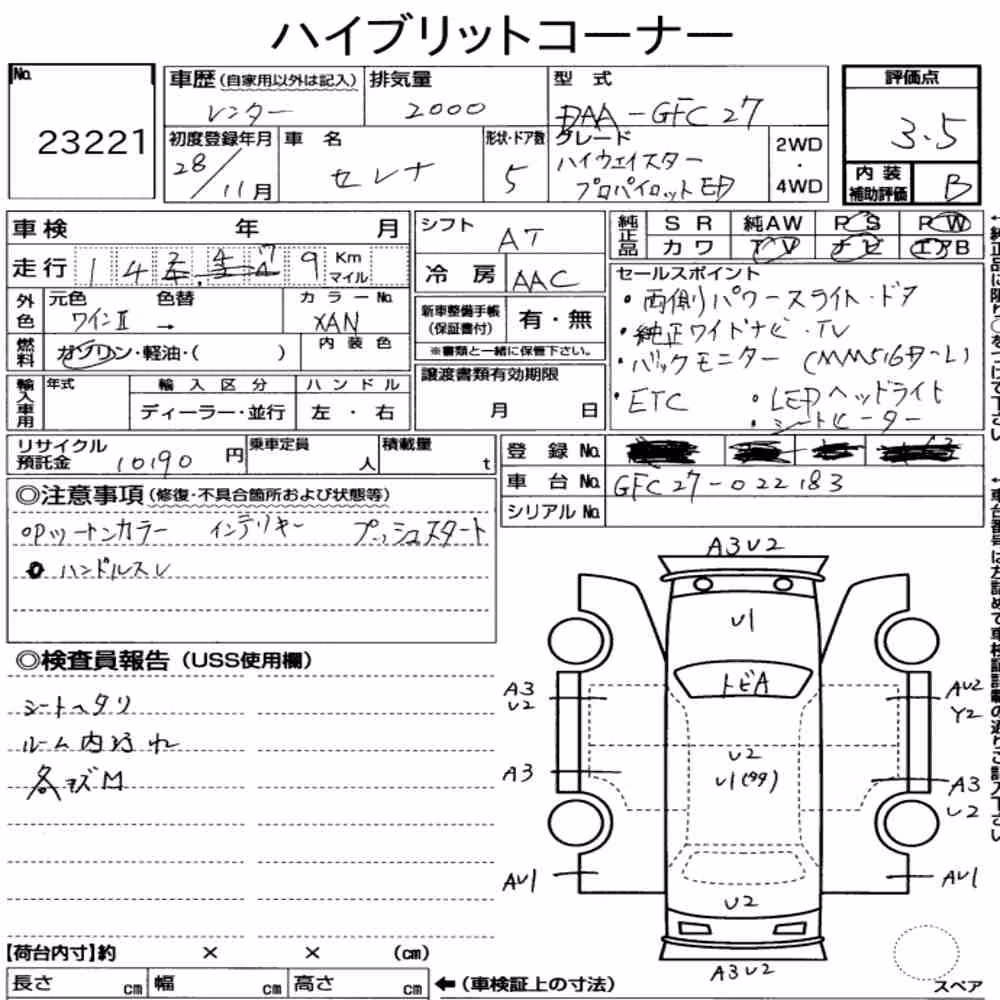 ハイブリットコーナー
No.
23221
車歴 (自家用以外は記入)
レンター
排気量
2000
型 式
DAA-GFC27
評価点
3.5
内装
補助評価
B
初度登録年月
28/11月
車 名
セレナ
形状・ドア数
5
グレード
ハイウェイスター
プロパイロットED
2WD
・
4WD
車検 年 月
走行
Km
マイル
シフト
AT
冷 房
AAC
純正品
SR 純AW PS PW
カワ TV ナビ エアB
外色
元色 色替
ワインII →
カラーNo.
XAN
燃料
ガソリン・軽油・( )
内装色
新車整備手帳
(保証書付)
有・無
※書類と一緒に保管下さい。
セールスポイント
・両側パワースライト・ドア
・純正ワイドナビ・TV
・バックモニター (MM516
・ETC ・LEDヘッドライト
・シートヒーター
輸入車用
年式
輸入区分
ディーラー・並行
ハンドル
左・右
譲渡書類有効期限
月 日
リサイクル
預託金
10190 円
乗車定員
人
積載量
t
登 録 No.
車 台 No.
GFC27-022183
シリアル No.
◎注意事項 (修復・不具合箇所および状態等)
OPツートンカラー インテリキー プッシュスタート
ハンドルスレ
◎検査員報告 (USS使用欄)
シートヘタリ
ルーム内汚れ
各キズM
A3U2
U1
トビA
A3
U2
AU2
Y2
U2
U1(99)
A3
A3
U2
AU1
AU1
U2
A3U2
スペア
【荷台内寸】約 × × (cm)
長さ cm 幅 cm 高さ cm
←(車検証上の寸法)